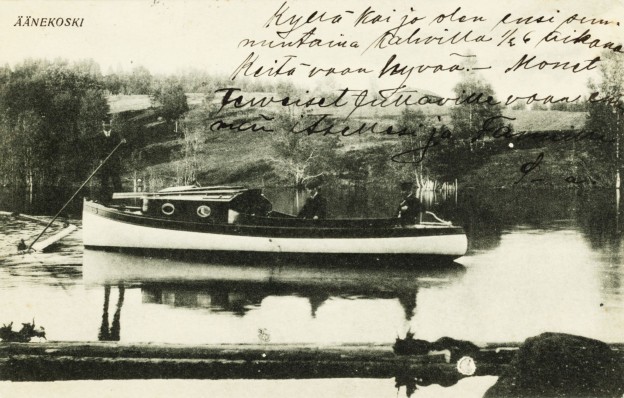 ÄÄNEKOSKI
Kyllä kai jo olen ensi sun-
nuntaina kahvilla ½6 aikana
Keitä vaan hyvää. — Monet
Terveiset Juttaville vaan
niin itsellesi ja